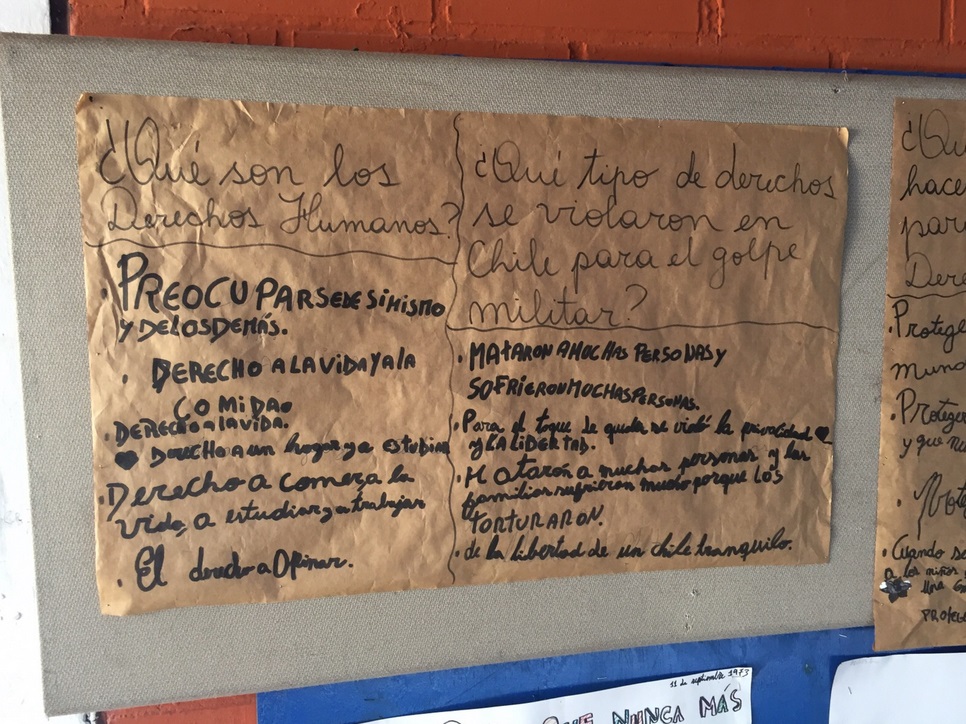 ¿Qué son los
Derechos Humanos?
• PREOCUPARSE DE SI MISMO
Y DE LOS DEMÁS.
• DERECHO A LA VIDA Y A LA
COMIDA
• DERECHO A LA VIDA.
♥ Derecho a un hogar y a estudiar
• Derecho a comer, a la
vida, a estudiar y a trabajar
• El derecho a Opinar.
¿Qué tipo de derechos
se violaron en
Chile para el golpe
militar?
• MATARON A MUCHAS PERSONAS Y
SOFRIERON MUCHAS PERSONAS.
• Para el toque de queda se violó la privacidad ♥
y LA LIBERTAD.
• Mataron a muchas personas y las
familias sufrieron mucho porque LOS
TORTURARON.
• de la libertad de un chile tranquilo.
¿Qu
hace
para
Dere
• Protege
mund
• Proteger
y que nu
• Prote
• Cuando se
los niños
Una
PROTEGE
11 de septiembre 1973
QUE NUNCA MÁS